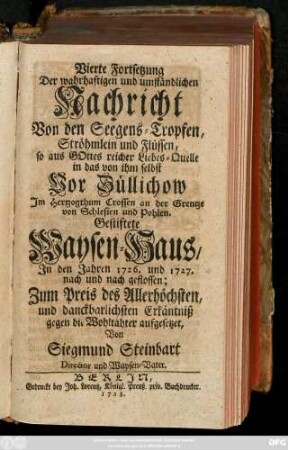 Vierte Fortsetzung
Der wahrhaftigen und umständlichen
Nachricht
Von den Seegens-Tropfen,
Ströhmlein und Flüssen,
so aus GOttes reicher Liebes-Quelle
in das von ihm selbst
Vor Züllichow
Im Hertzogthum Crossen an der Grentze
von Schlesien und Pohlen.
Gestiftete
Waysen-Haus,
In den Jahren 1726. und 1727.
nach und nach geflossen;
Zum Preis des Allerhöchsten,
und danckbarlichsten Erkäntniß
gegen die Wohlthäter aufgesetzet,
Von
Siegmund Steinbart
Directore und Waysen-Vater.
BERLIN,
Gedruckt bey Joh. Lorentz, Königl. Preuß. priv. Buchdrucker.
1728.